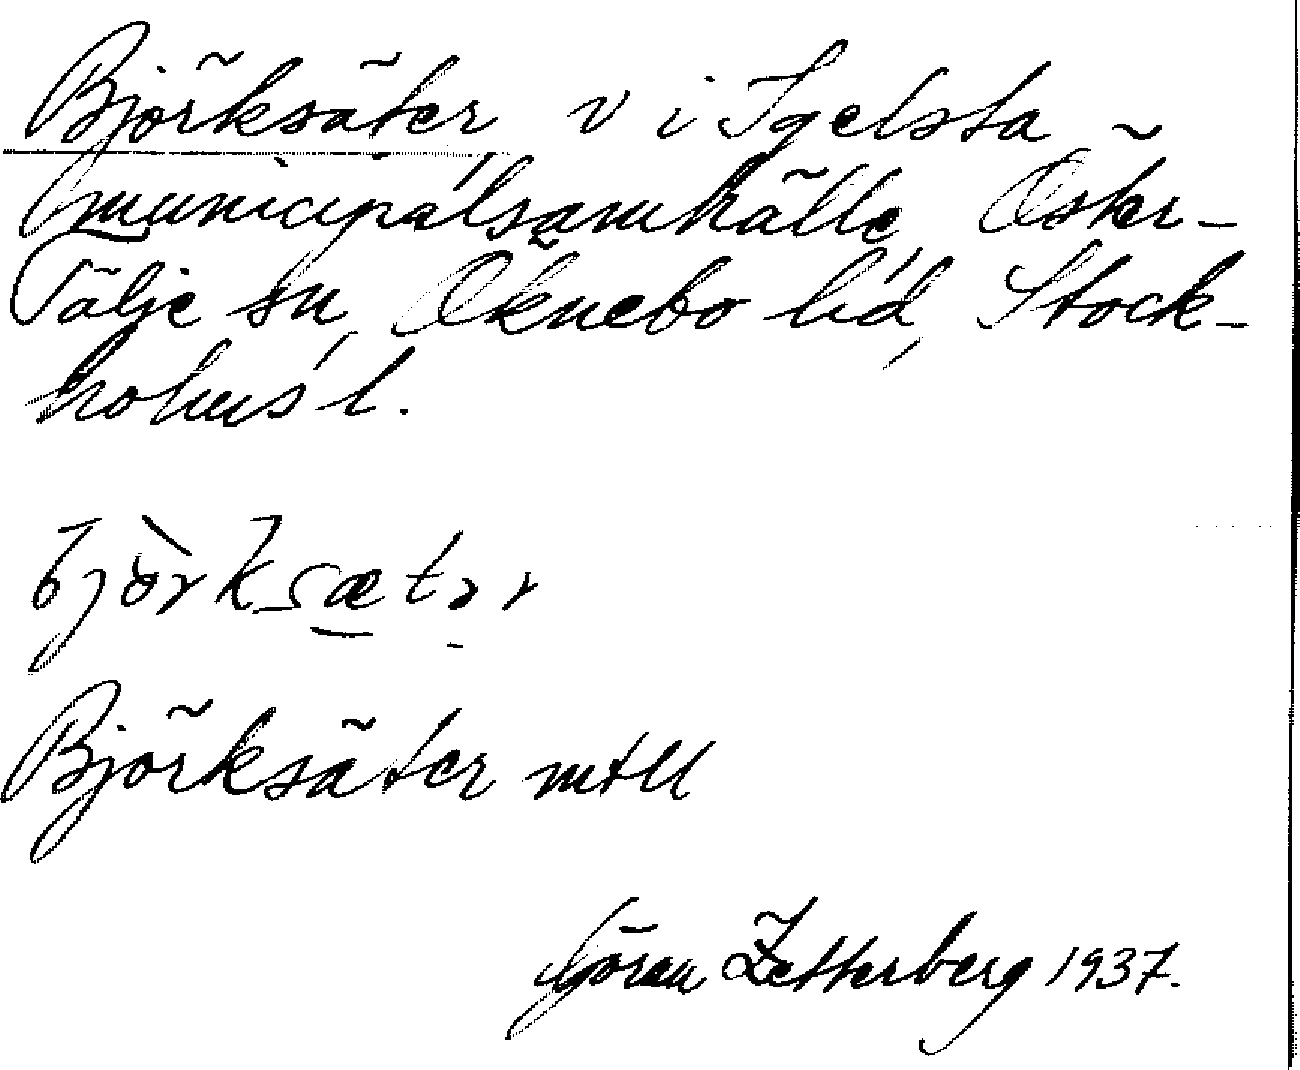 Björksäter v i Igelsta
municipalsamhälle, Öster-
Tälje sn, Öknebo hd, Stock-
holms l.
bjö̀rksætər
Björksäter mtll
Göran Zetterberg 1937.